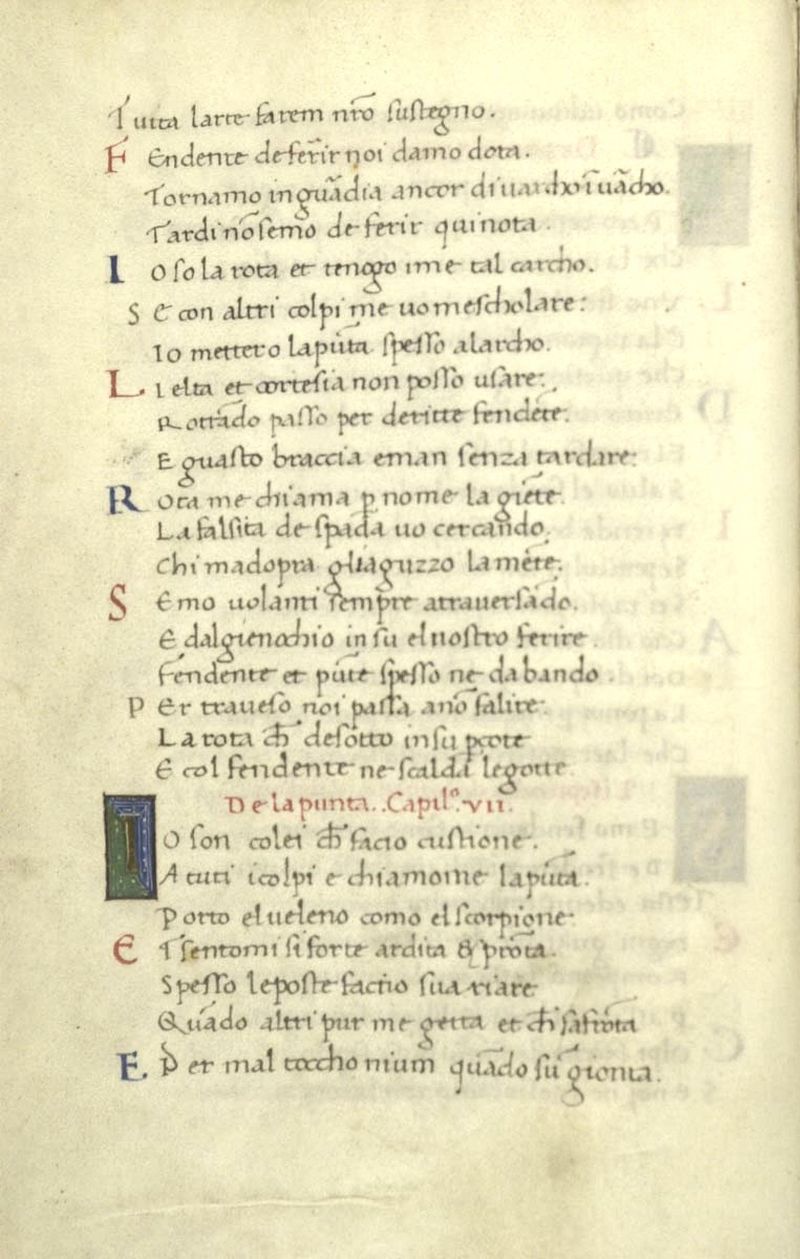 Tutta larte farem nr̃o sustegno.
Fendente de ferir noi damo dota.
Tornamo in guādia ancor di uardo ī uācho.
Tardi nō semo de ferir qui nota.
Io so la rota et tengo ime tal carcho.
Se con altri colpi me uo mescholare:
Io mettero la pūta spesso alarcho.
Lielta et cortesia non posso usare:
Rotādo passo per deritte fendēte.
E guasto braccia e man senza tardare:
Rota me chiama p nome la giēte
La falsita de spada uo cercando.
Chi madopra gliaguzzo la mēte.
Semo uolanti sempre atrauersādo.
E dal gienochio in su el nostro ferire
fendente et pūte spesso ne da bando.
Per traueso noi passa a nō falire
La rota ch̄ desotto in su percote
E col fendente ne scalda le gotte
De la punta. Capilo. vii.
Io son colei ch̄ facio custione.
A tuti icolpi e chiamome la pūta.
Porto el ueleno como el scorpione.
E sentomi si forte ardita & prōta.
Spesso le poste facio suariare
Quādo altri pur me getta et ch̄ safrōta
E p er mal toccho nium quādo sū gionta.